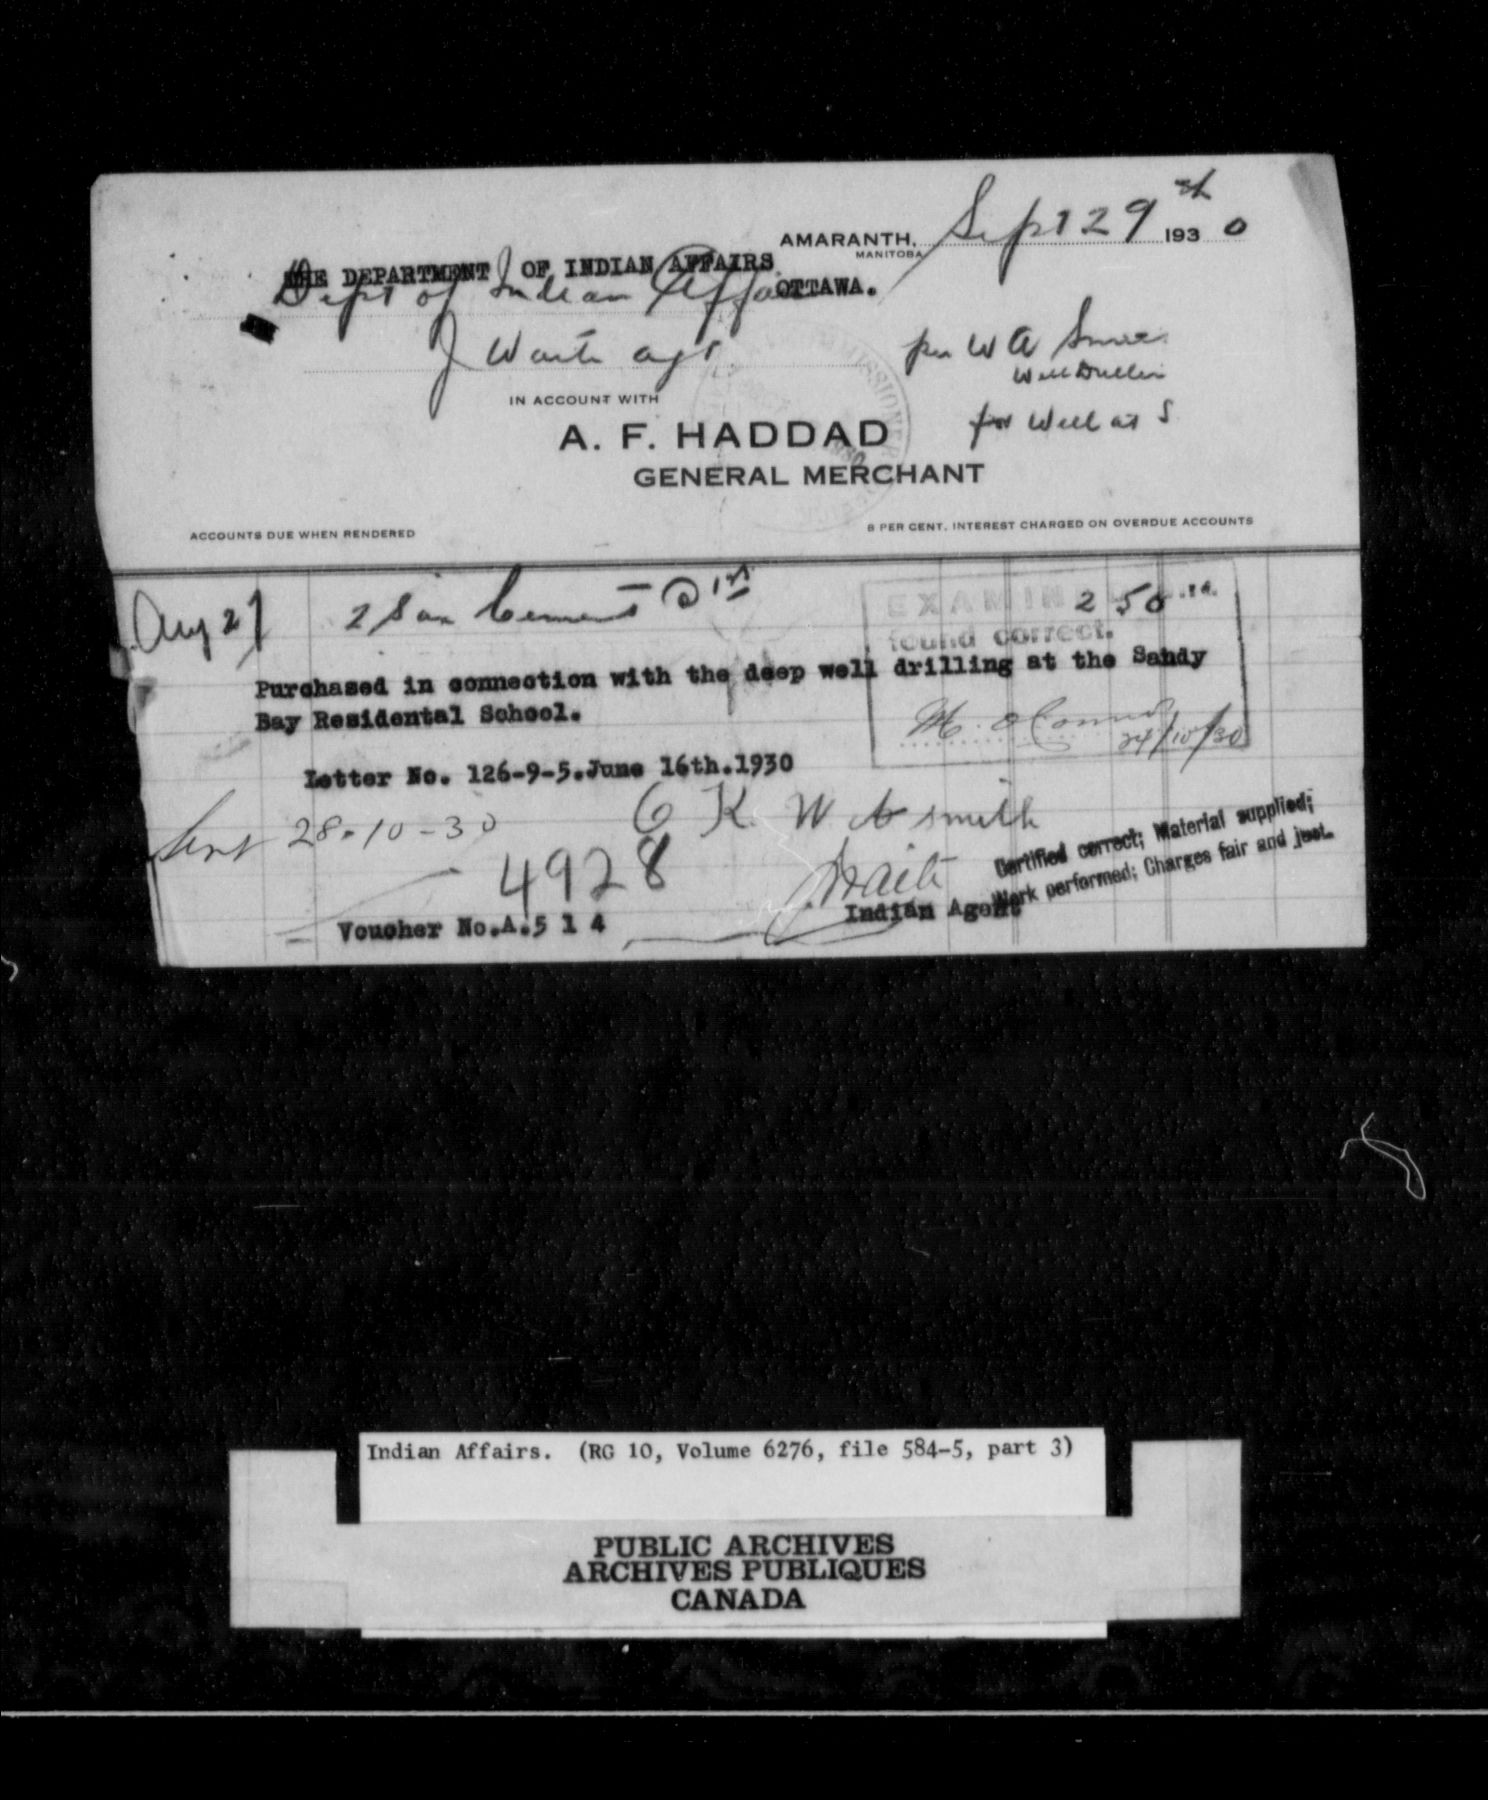 AMARANTH, Sept 29th 1930
MANITOBA
THE DEPARTMENT OF INDIAN AFFAIRS
Dept of Indian Affairs
OTTAWA.
J Waite agt
per W A
Well Driller
for Well at S
IN ACCOUNT WITH
A. F. HADDAD
GENERAL MERCHANT
ACCOUNTS DUE WHEN RENDERED
8 PER CENT. INTEREST CHARGED ON OVERDUE ACCOUNTS
Aug 27 2 Cement @ 2 50
found correct.
Purchased in connection with the deep well drilling at the Sandy
Bay Residental School.
M. O'Connor
24/10/30
Letter No. 126-9-5.June 16th.1930
Sent 28-10-30
O K. W A Smith
Certified correct; Material supplied;
Work performed; Charges fair and just.
4928
J. Waite
Indian Agent
Voucher No.A.5 1 4
Indian Affairs. (RG 10, Volume 6276, file 584-5, part 3)
PUBLIC ARCHIVES
ARCHIVES PUBLIQUES
CANADA